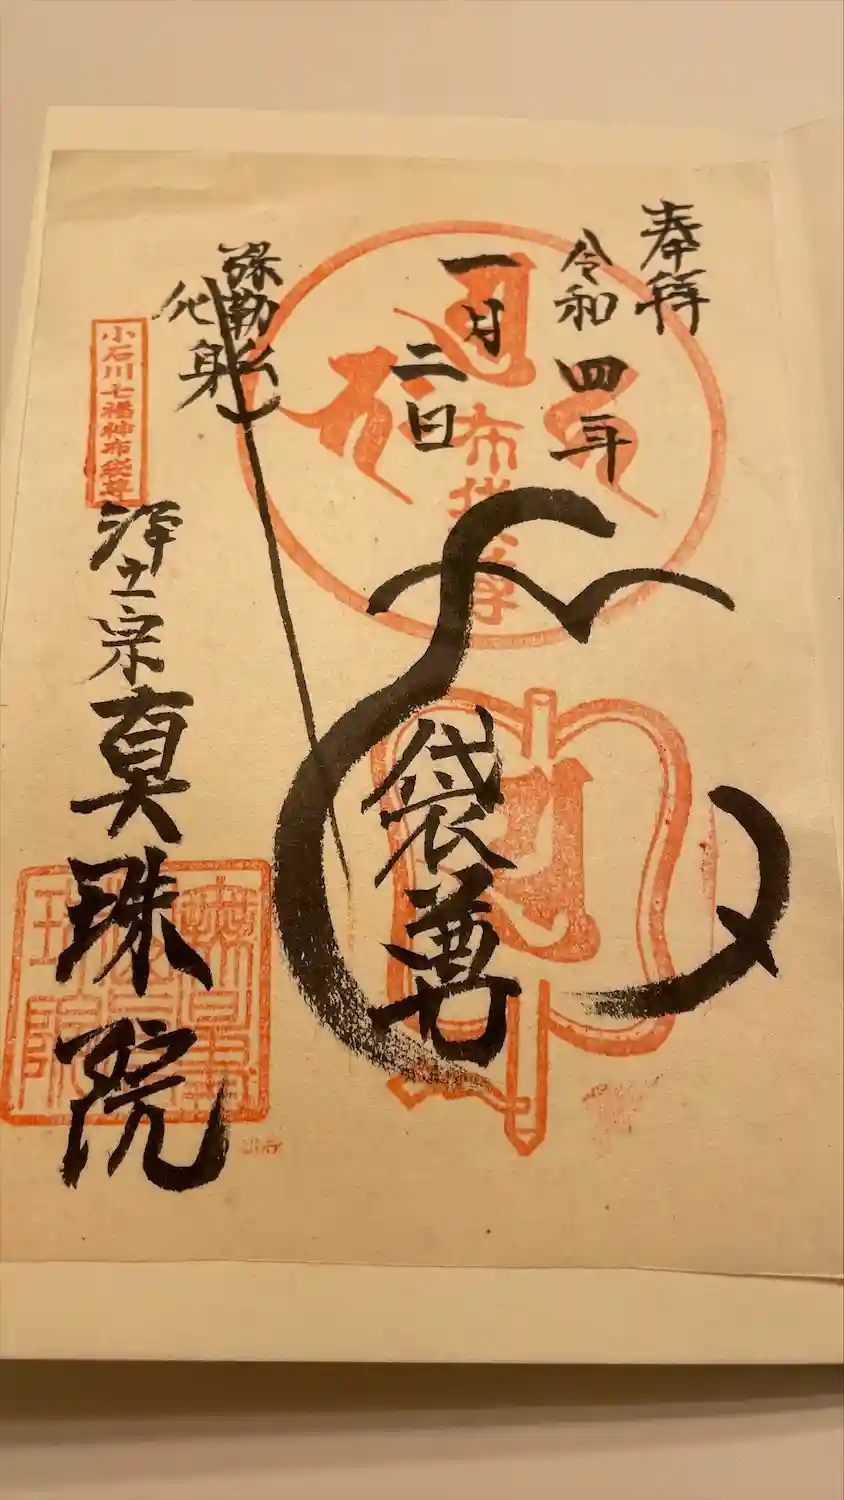 奉拝
令和四年
一月二日
布袋尊
袋尊
弥勒仏
化身
小石川七福神布袋尊
浄土宗真珠院